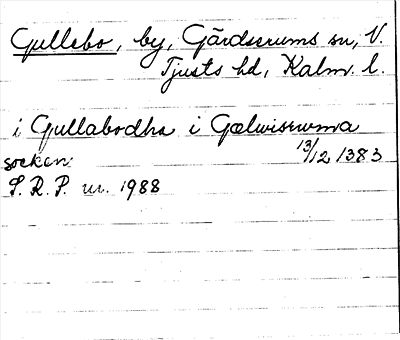 Gullebo, by, Gärdserums sn, N.
Tjusts hd, Kalm. l.
i Gullabodha i Gælwiserwma
socken: 13/12 1383
S. R. P. nr. 1988